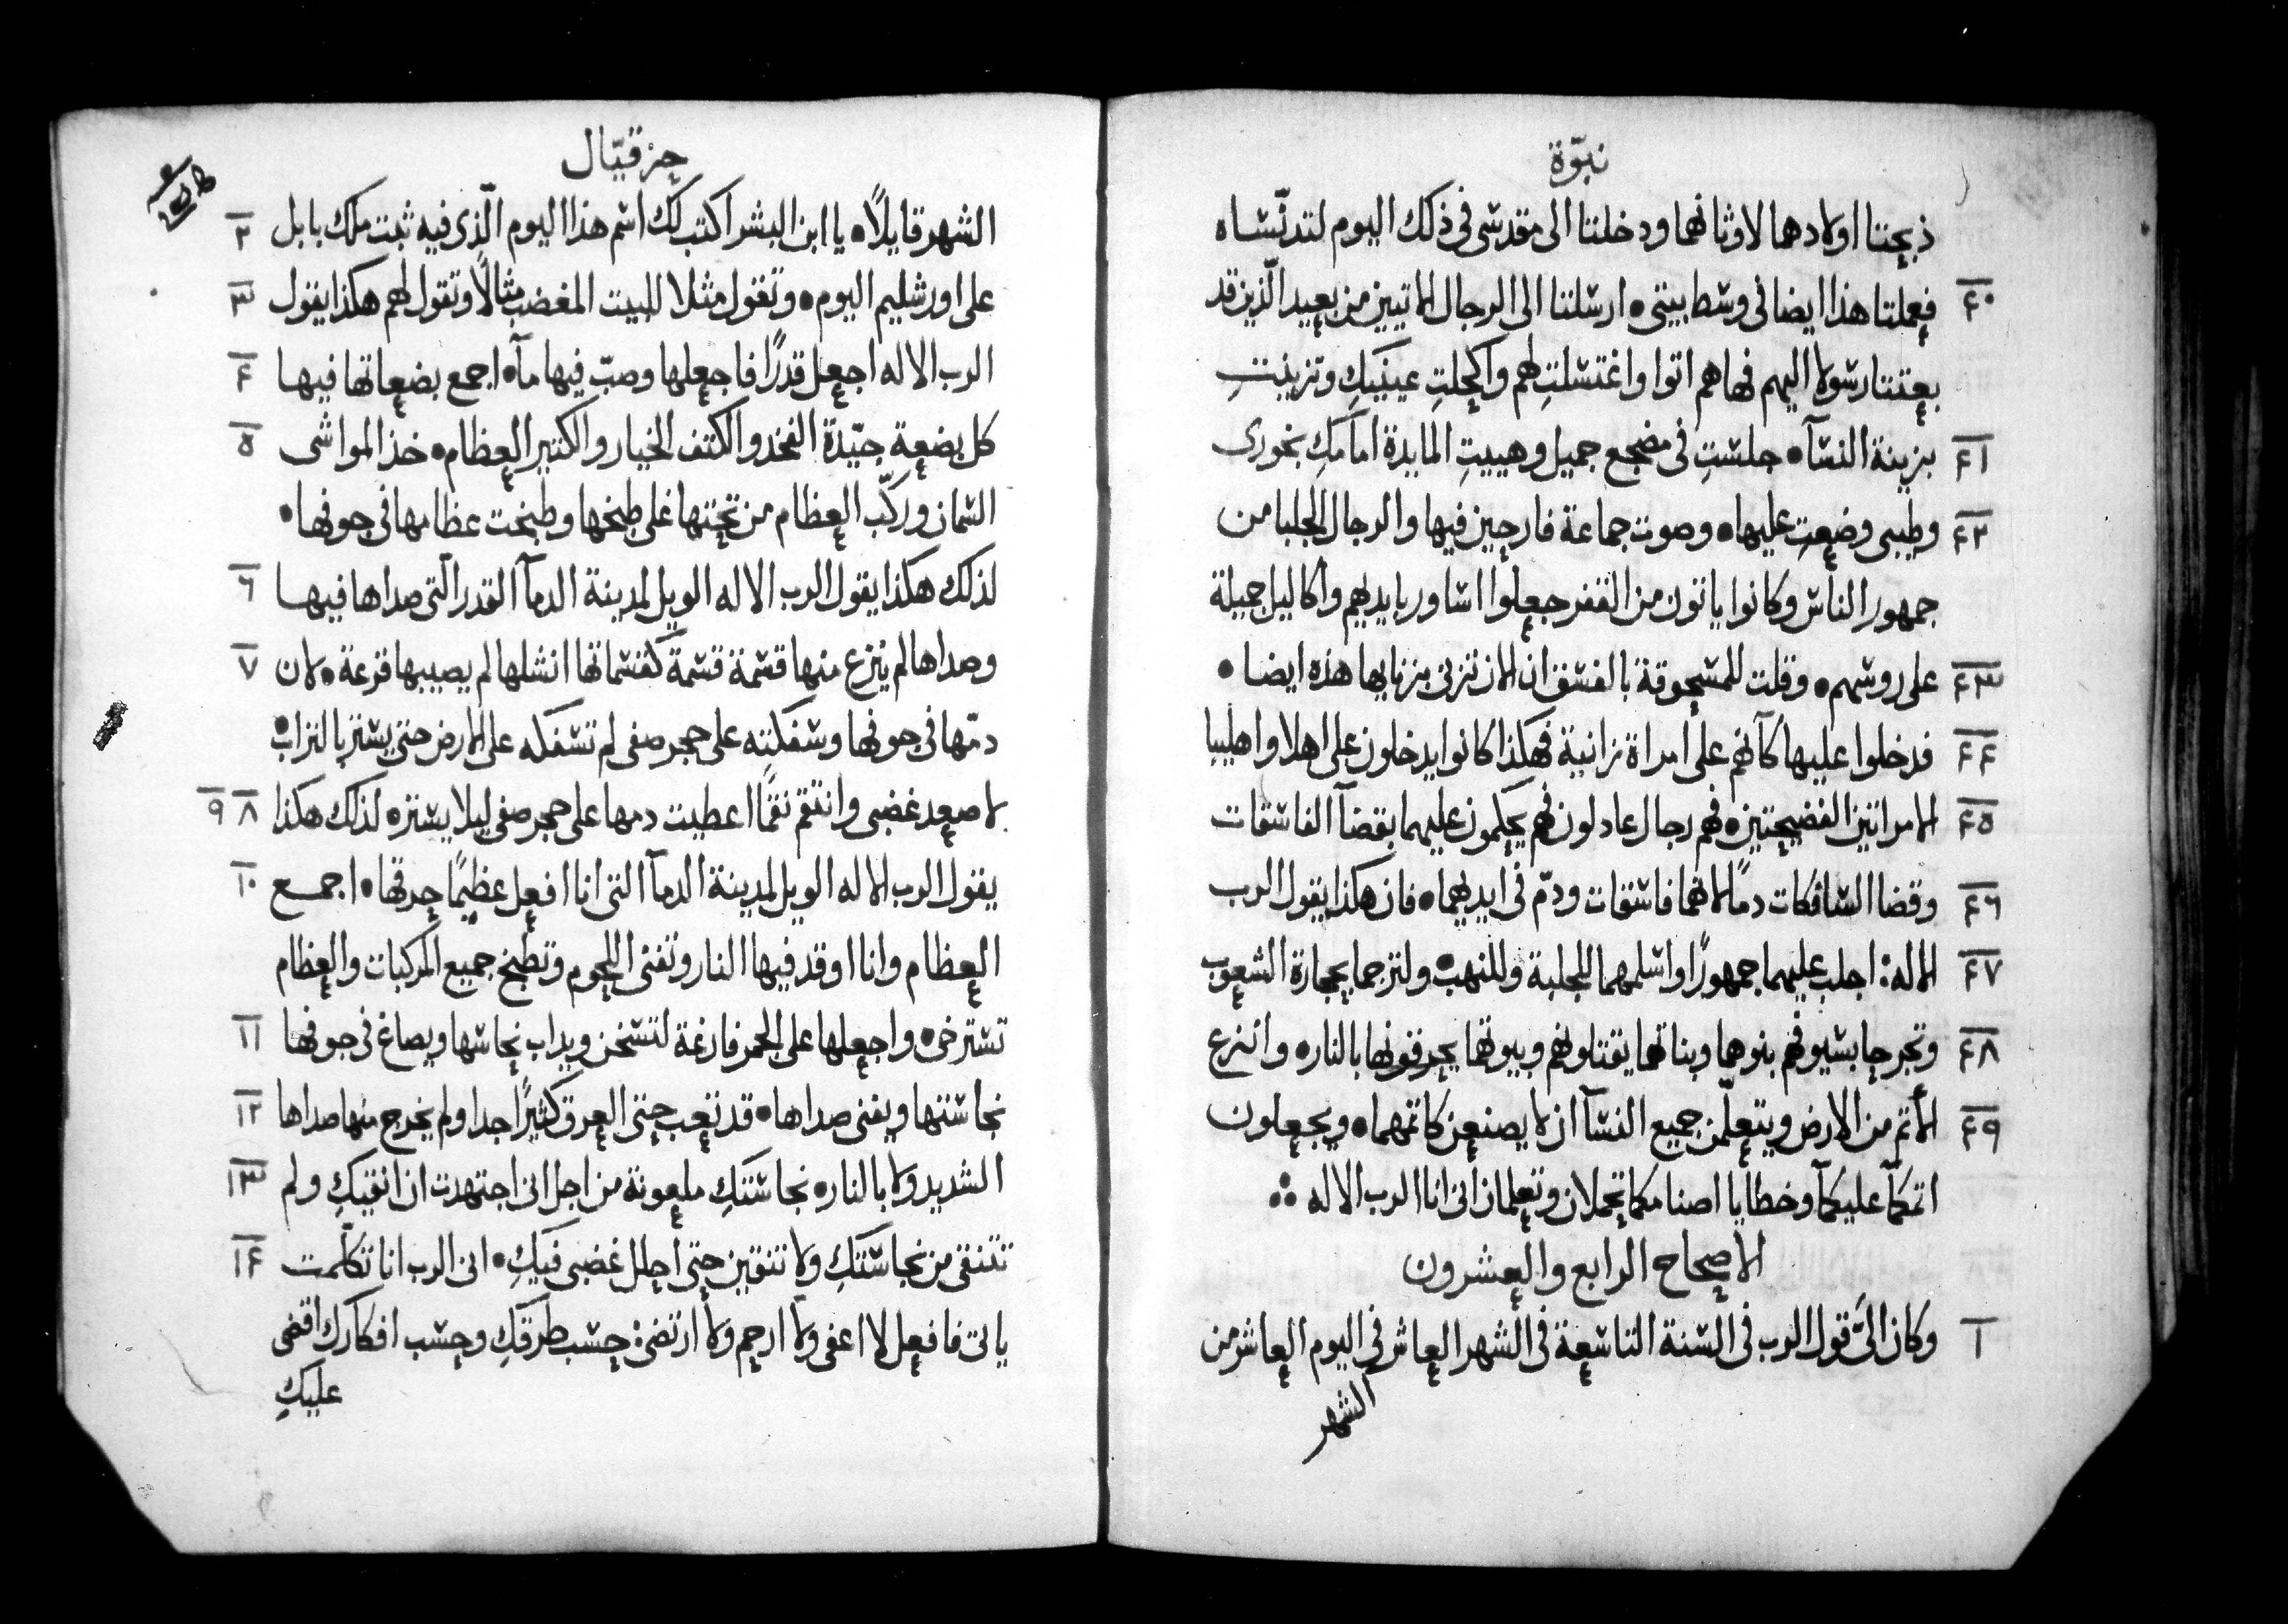 نبوّة
ذبحتا اولادهما لاوثانهما ودخلتا الى مقدسى فى ذلك اليوم لتدنّساه
٤٠ فعملتا هذا ايضا فى وسط بيتى • ارسلتا الى الرجال الاتيين من بعيد الّذين قد
بعثتا رسولا اليهم فها هم اتوا واغتسلتِ لهم واكحلتِ عينيكِ وتزينتِ
٤١ بزينة النسآ • جلستِ فى مضجع جميل وهييتِ المايدة امامكِ بخورى
٤٢ وطيبى وضعتِ عليها • وصوت جماعة فارحين فيها والرجال الجلبا من
جمهور الناس وكانوا ياتون من القفر جعلوا اساور بايديهم واكاليل جميلة
٤٣ على روسهم • وقلت للمسحوقة بالفسق ان الان تزنى بزنايها هذه ايضا •
٤٤ فدخلوا عليها كآنهم على امراة زانية فهكذا كانوا يدخلون على اهلا واهليبا
٤٥ الامراتين الفضيحتين • فهم رجال عادلون فهم يحكمون عليهما بقضآ الفاسقات
٤٦ وقضا السافكات دمًا لانهما فاسقات ودمّ فى ايديهما • فان هكذا يقول الرب
٤٧ الاله : اجلب عليهما جمهورًا واسلمهما للجلبة وللنهب • ولترجما بحجارة الشعوب
٤٨ وتجرحا بسيوفهم بنوها وبناتهما يقتلونهم وبيوتها يحرقونها بالنار • وانزع
٤٩ الأثم من الارض ويتعلّمن جميع النسآ ان لا يصنعن كاثمهما • ويجعلون
اثمكمآ عليكمآ وخطايا اصنامكما تحملان وتعلمان أنى انا الرب الاله
الاصحاح الرابع والعشرون
١ وكان الىَّ قول الرب فى السنة التاسعة فى الشهر العاشر فى اليوم العاشر من
الشهر
حزقيّال
٢ الشهر قايلاً • يا ابن البشر اكتب لك اسم هذا اليوم الّذى فيه ثبت ملك بابل
٣ على اورشليم اليوم • وتقول مثلا للبيت المغضب مثالاً وتقول لهم هكذا يقول
٤ الرب الاله اجعل قدرًا فاجعلها وصبّ فيها مآ • اجمع بضعاتها فيها
٥ كل بضعة جيّدة الفخذ والكتف الخيار والكثير العظام • خذ المواشى
السمان وركّب العظام من تحتها غلى طبخها وطبخت عظامها فى جوفها •
٦ لذلك هكذا يقول الرب الاله الويل لمدينة الدمآ القدر الّتى صداها فيها
٧ وصداها لم ينزع منها قسمة قسمة كقسماتها انشلها لم يصيبها قرعة • لان
دمّها فى جوفها وسفكته على حجر صفى لم تسفكه على الارض حتى يستر بالتراب •
٨ ٩ لاصعد غضبى وانتقم نقمًا اعطيت دمها على حجر صفى ليلا يستر • لذلك هكذا
١٠ يقول الرب الاله الويل لمدينة الدمآ التى انا افعل عظيمًا حرقها • اجمع
العظام وانا اوقد فيها النار وتفنى اللحوم وتطبخ جميع المركبات والعظام
١١ تسترخى • واجعلها على الجمر فارغة لتسخن ويداب نحاسها ويصاغ فى جوفها
١٢ نجاستها ويفنى صداها • قد تعب حتى العرق كثيرًا جدا ولم يخرج منها صداها
١٣ الشديد ولا بالنار • نجاستكِ ملعونة من اجل انى اجتهدت ان انقيكِ ولم
١٤ تتنقى من نجاستكِ ولا تنتقين حتى احلل غضبى فيكِ • انى الرب انا تكلّمت
ياتى فافعل لا اعفى ولا ارحم ولا ارتضى : حسب طرقكِ وحسب افكارك اقضى
عليكِ